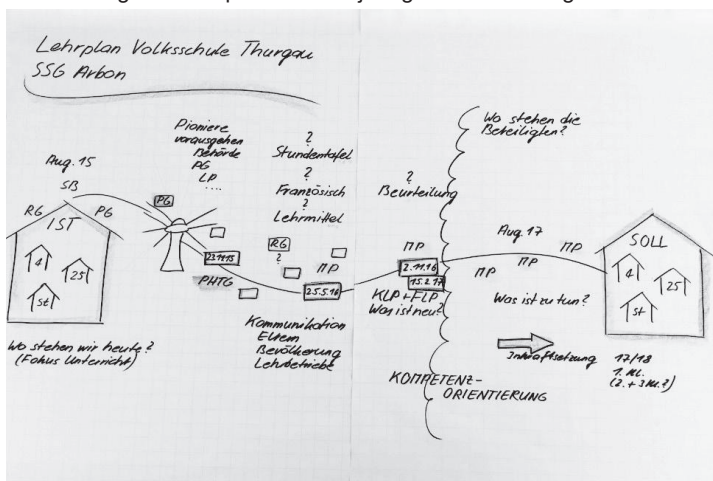 Lehrplan Volksschule Thurgau
SSG Arbon
Aug. 15
SB
RG
PG
IST
4
25
St
Wo stehen wir heute?
(Fokus Unterricht)
Pioniere
vorausgehen
Behörde
PG
LP
....
PG
23.11.15
PHTG
?
Stundentafel
?
Französisch
?
Lehrmittel
RG
?
MP
25.5.16
Kommunikation
Eltern
Bevölkerung
Lehrbetriebe
?
Beurteilung
MP
2.11.16
15.2.17
KLP + FLP
Was ist neu?
KOMPETENZ-
ORIENTIERUNG
Wo stehen die
Beteiligten?
Aug. 17
MP
MP
MP
Was ist zu tun?
Inkraftsetzung
SOLL
4
25
St
17/18
1. Kl.
(2. + 3. Kl.?)